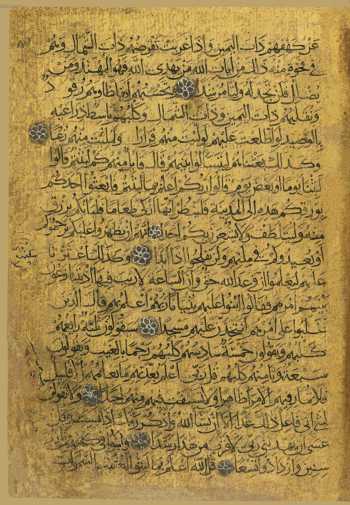 عن كهفهم ذات اليمين واذا غربت تقرضهم ذات الشمال وهم
في فجوة منه ذلك من ايات الله من يهدى الله فهو المهتد ومن
يضلل فلن تجد له وليا مرشدا وتحسبهم ايقاظا وهم رقود
ونقلبهم ذات اليمين وذات الشمال وكلبهم باسط ذراعيه
بالوصيد لو اطلعت عليهم لوليت منهم فرارا ولملئت منهم رعبا
وكذلك بعثناهم ليتساءلوا بينهم قال قائل منهم كم لبثتم قالوا
لبثنا يوما او بعض يوم قالوا ربكم اعلم بما لبثتم فابعثوا احدكم
بورقكم هذه الى المدينة فلينظر ايها ازكى طعاما فلياتكم برزق
منه وليتلطف ولا يشعرن بكم احدا انهم ان يظهروا عليكم يرجموكم
او يعيدوكم في ملتهم ولن تفلحوا اذا ابدا وكذلك اعثرنا
عليهم ليعلموا ان وعد الله حق وان الساعة لا ريب فيها اذ يتنازعون
بينهم امرهم فقالوا ابنوا عليهم بنيانا ربهم اعلم بهم قال الذين
غلبوا على امرهم لنتخذن عليهم مسجدا سيقولون ثلثة رابعهم
كلبهم ويقولون خمسة سادسهم كلبهم رجما بالغيب ويقولون
سبعة وثامنهم كلبهم قل ربي اعلم بعدتهم ما يعلمهم الا قليل
فلا تمار فيهم الا مراء ظاهرا ولا تستفت فيهم منهم احدا ولا تقولن
لشيء اني فاعل ذلك غدا الا ان يشاء الله واذكر ربك اذا نسيت وقل
عسى ان يهدين ربي لاقرب من هذا رشدا ولبثوا في كهفهم ثلثمائة
سنين وازدادوا تسعا قل الله اعلم بما لبثوا له غيب السموات